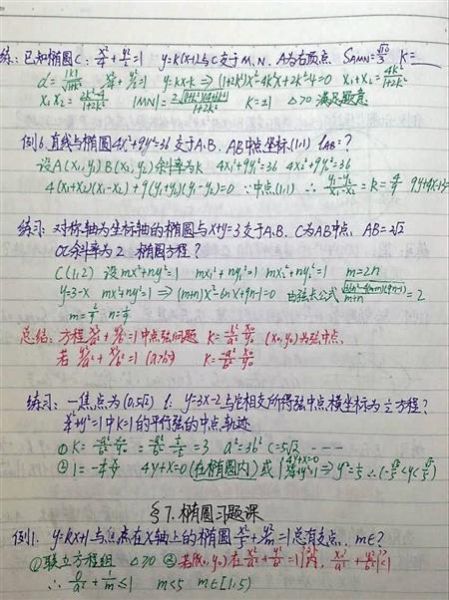 练: 已知椭圆C: x²/4 + y²/2 = 1 y=k(x-1)与C交于M.N. A为右顶点 S△AMN = √10/3 k=__
d = |k|/√(1+k²) x²/4 + y²/2 = 1 y=kx-k ⇒ (1+2k²)x²-4k²x+2k²-4=0 x₁+x₂ = 4k²/(1+2k²)
x₁x₂ = (2k²-4)/(1+2k²) |MN| = k=±1 △>0 满足题意
例6. 直线与椭圆4x²+9y²=36 交于A.B. AB中点坐标(1,1) lAB=?
设A(x₁,y₁) B(x₂,y₂) 斜率为k 4x₁²+9y₁²=36 4x₂²+9y₂²=36
4(x₁+x₂)(x₁-x₂)+9(y₁+y₂)(y₁-y₂)=0 ∵中点(1,1) ∴ (y₁-y₂)/(x₁-x₂) = k = 9y+4x-13
练习: 对称轴为坐标轴的椭圆与x+y=3交于A.B. C为AB中点, AB=2√2
OC斜率为2 椭圆方程?
C(1,2) 设mx²+ny²=1 mx₁²+ny₁²=1 mx₂²+ny₂²=1 m=2n
y=3-x mx²+ny²=1 ⇒ (m+n)x²-6nx+9n-1=0 由弦长公式 = 2
总结: 方程x²/a²+y²/b²=1中点弦问题 k=-b²/a² x₀/y₀ (x₀,y₀)为弦中点,
若 y²/a²+x²/b²=1 (a>b>0) k=-a²/b² x₀/y₀
练习: 一焦点为(0,5√2) l: y=3x-2与它相交所得弦中点横坐标为½ 方程?
+y²=1中k=1的平行弦的中点轨迹
① k= =3 a²=3b² c=5√2 ----
② 1= 4y+x=0 (在椭圆内) 或 ⇒ y²=1/5
§7. 椭圆习题课
例1. y=kx+1与焦点在x轴上的椭圆 =1总有交点, m∈?
①联立方程组 △≥0 ②若(x₀,y₀)在x²/a²+y²/b²=1内,
∴ 0/a² + 1/m ≤1 m<5 m∈[1,5)